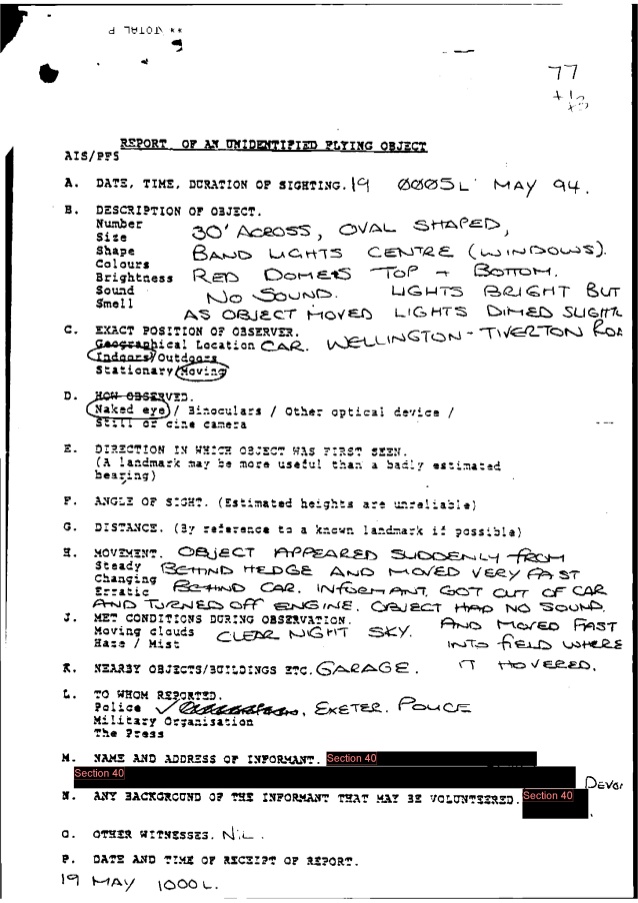 ** TOTAL P
77
REPORT OF AN UNIDENTIFIED FLYING OBJECT
AIS/PFS
A. DATE, TIME, DURATION OF SIGHTING. 19 0005L MAY 94.
B. DESCRIPTION OF OBJECT.
Number
Size 30' ACROSS, OVAL SHAPED,
Shape BAND LIGHTS CENTRE (WINDOWS).
Colours
Brightness RED DOMES TOP + BOTTOM.
Sound NO SOUND. LIGHTS BRIGHT BUT
Smell AS OBJECT MOVED LIGHTS DIMED
C. EXACT POSITION OF OBSERVER.
Geographical Location CAR. WELLINGTON - TIVERTON ROA
Indoors/Outdoors
Stationary/Moving
D. HOW OBSERVED.
Naked eye / Binoculars / Other optical device /
Still or cine camera
E. DIRECTION IN WHICH OBJECT WAS FIRST SEEN.
(A landmark may be more useful than a badly estimated
bearing)
F. ANGLE OF SIGHT. (Estimated heights are unreliable)
G. DISTANCE. (By reference to a known landmark if possible)
H. MOVEMENT. OBJECT APPEARED SUDDENLY FROM
Steady BEHIND HEDGE AND MOVED VERY FAST
Changing
Erratic BEHIND CAR. INFORMANT GOT OUT OF CAR
AND TURNED OFF ENGINE. OBJECT HAD NO SOUND.
J. MET CONDITIONS DURING OBSERVATION. AND MOVED FAST
Moving clouds CLEAR NIGHT SKY. INTO FIELD WHERE
Haze / Mist
K. NEARBY OBJECTS/BUILDINGS ETC. GARAGE. IT HOVERED.
L. TO WHOM REPORTED.
Police ✓ EXETER. POLICE
Military Organisation
The Press
M. NAME AND ADDRESS OF INFORMANT. Section 40
Section 40 DEVO
N. ANY BACKGROUND OF THE INFORMANT THAT MAY BE VOLUNTEERED. Section 40
O. OTHER WITNESSES. NIL.
P. DATE AND TIME OF RECEIPT OF REPORT.
19 MAY 1000L.